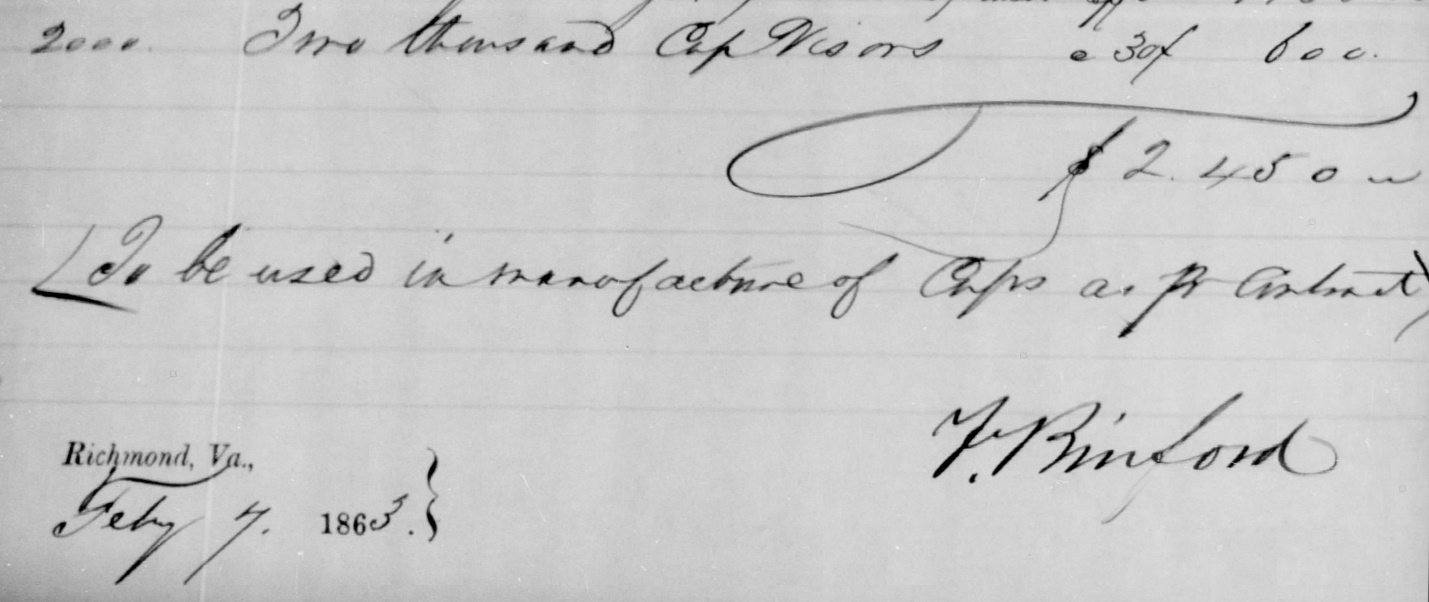 2000. Two thousand Cap Visors @ 30¢ 600.
$2.450
(To be used in manufacture of Caps as pr Contract)
F. Binford
Richmond, Va.,
Feby 7. 1863.